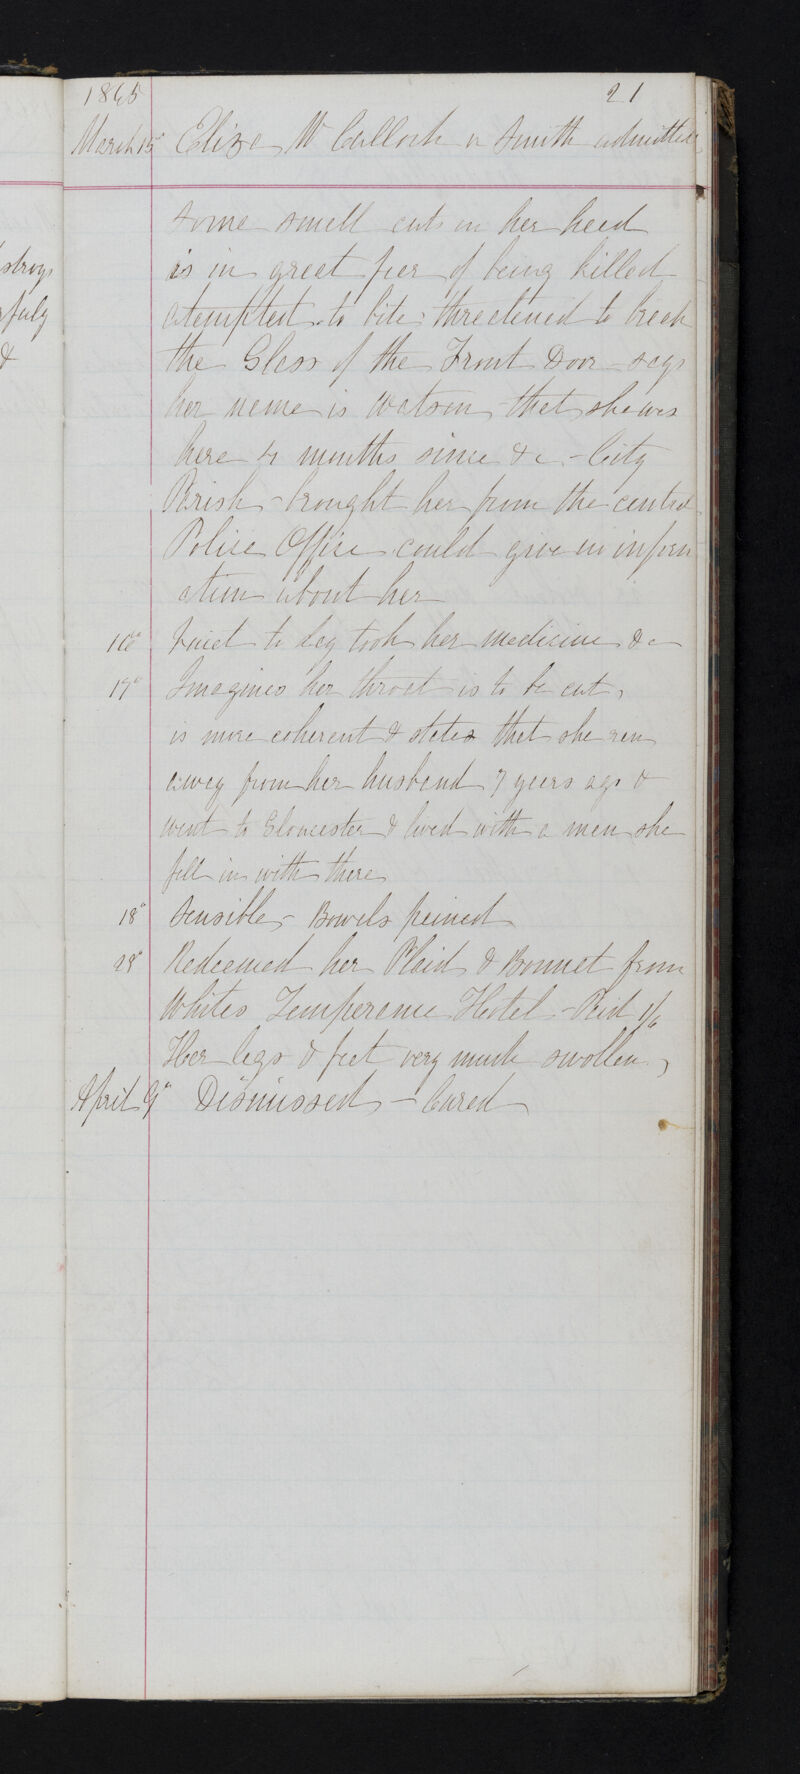 1865 21
March 15" Eliza McCulloch or Smith admitted
Some small cuts on her head
is in great fear of being killed
attempted to bite threatened to break
the Glass of the Front Door - says
her name is Watson - that she was
here 4 months since &c - City
Parish - brought her from the central
Police Office could give no inform
ation about her
16" Quiet to day took her medicine &c
17" Imagines her throat is to be cut,
is more coherent & states that she ran
away from her husband 7 years ago &
went to Gloucester & lived with a man she
fell in with there
18" Sensible - Bowels pained
28" Redeemed her Plaid & Bonnet from
Whites Temperance Hotel - Paid 1/6
Her legs & feet very much swollen,
April 9" Dismissed - Cured